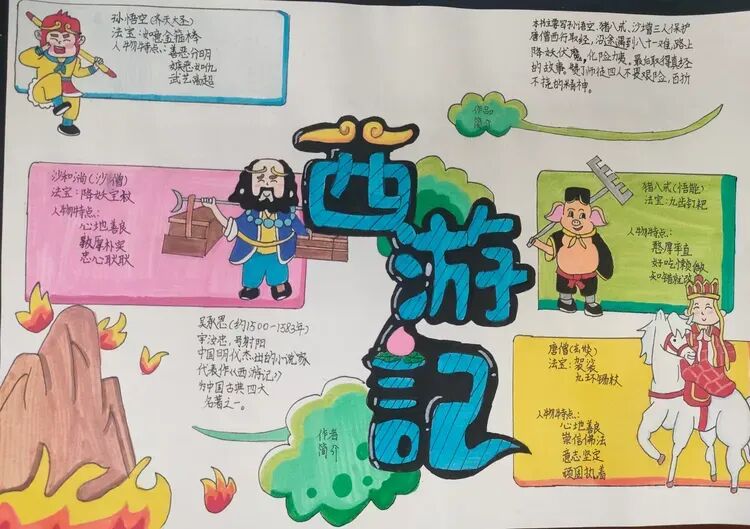 孙悟空(齐天大圣)
法宝:如意金箍棒
人物特点:善恶分明
嫉恶如仇
武艺高超
本书主要写孙悟空、猪八戒、沙增三人保护
唐僧西行取经,沿途遇到八十一难,路上
降妖伏魔,化险为夷,最后取得真经
的故事,赞了师徒四人不畏艰险,百折
不挠的精神。
作品
简介
沙和尚(沙僧)
法宝:降妖宝杖
人物特点:
心地善良
敦厚朴实
忠心耿耿
西游記
猪八戒(悟能)
法宝:九齿钉耙
人物特点:
憨厚率直
好吃懒做
知错就改
吴承恩(约1500-1583年)
字汝忠,号射阳
中国明代杰出的小说家
代表作《西游记》
为中国古典四大
名著之一。
作者
简介
唐僧(玄奘)
法宝:袈裟
九环锡杖
人物特点:
心地善良
崇信佛法
意志坚定
顽固执着